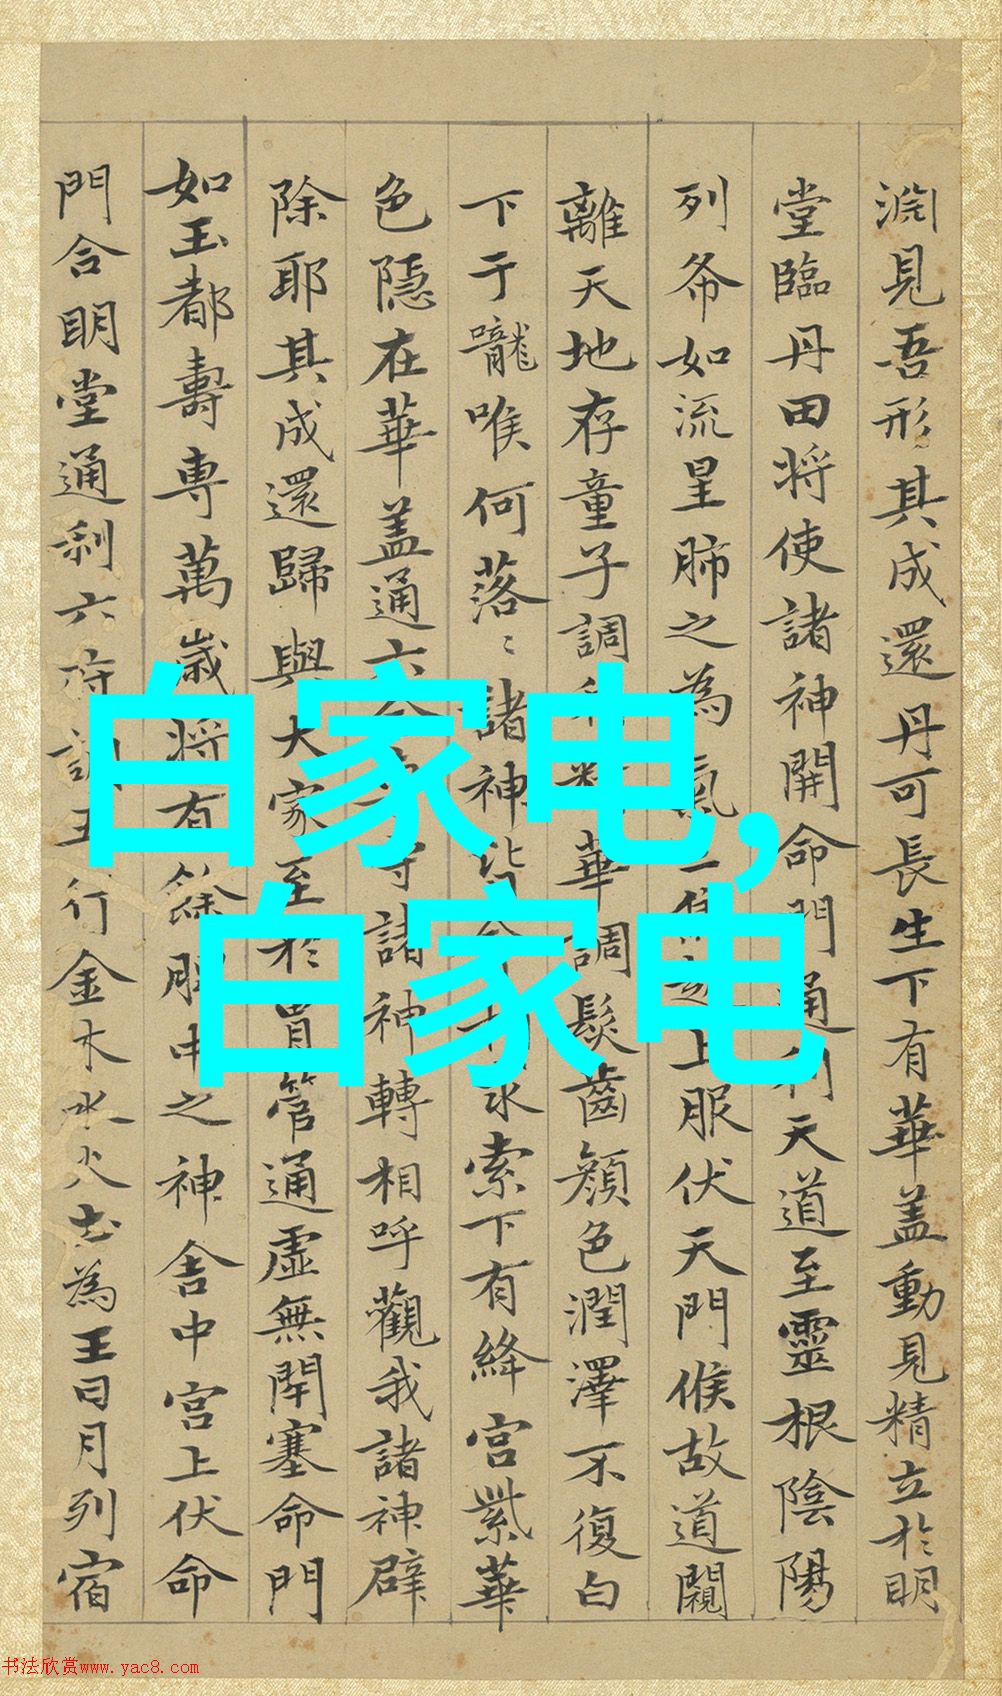 淵見吾形其成還丹可長生下有華盖動見精立於明
堂臨丹田将使諸神開命門通利天道至靈根陰陽
列布如流星肺之為氣上服伏天門候故道闚
離天地存童子調華調髮齒顔色潤澤不復白
下于嚨喉何落〻諸神求索下有絳宮紫華
色隱在華盖通六守諸神轉相呼觀我諸神辟
除耶其成還歸與大家至於胃管通虛無閉塞命門
如玉都壽專萬歲将有餘脾中之神舍中宮上伏命
門合明堂通利六府調五行金木水火土為王日月列宿
白家电,
白家电
书法欣赏www.yac8.com